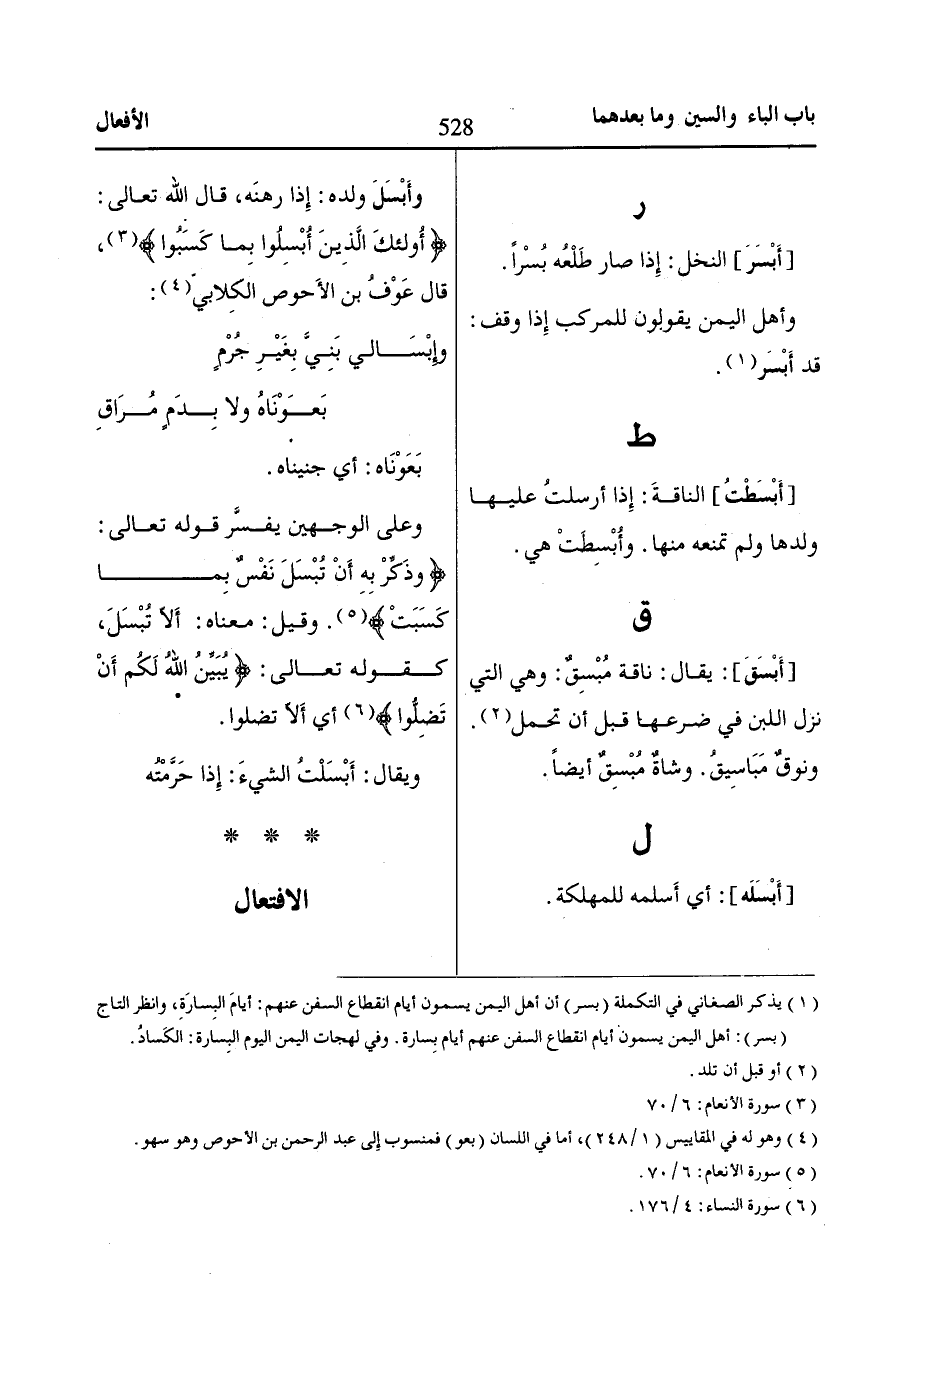 باب الباء والسين وما بعدهما
528
الأفعال
ر
[أَبْسَرَ] النخل: إِذا صار طَلْعُه بُسْراً.
وأهل اليمن يقولون للمركب إِذا وقف:
قد أَبْسَر(١).
ط
[أَبْسَطْتُ] الناقةَ: إِذا أرسلتُ عليها
ولدها ولم تمنعه منها. وأُبْسِطَتْ هي.
ق
[أَبْسَقَ]: يقال: ناقة مُبْسِقٌ: وهي التي
نزل اللبن في ضرعها قبل أن تحمل(٢).
ونوقٌ مَبَاسِيقُ. وشاةٌ مُبْسِقٌ أيضاً.
ل
[أَبْسَلَه]: أي أسلمه للمهلكة.
وأَبْسَلَ ولده: إِذا رهنَه، قال الله تعالى:
﴿أُولئكَ الَّذينَ أُبْسِلُوا بِما كَسَبُوا﴾(٣)،
قال عَوْفُ بن الأحوص الكلابيّ(٤):
وإِبْسَـــالي بَنِيَّ بِغَيْـرِ جُرْمٍ
بَعَـوْنَاهُ ولا بِـدَمٍ مُـرَاقِ
بَعَوْنَاه: أي جنيناه.
وعلى الوجهين يفسَّر قوله تعالى:
﴿وذَكِّرْ بِهِ أَنْ تُبْسَلَ نَفْسٌ بِمـــا
كَسَبَتْ﴾(٥). وقيل: معناه: ألاَّ تُبْسَلَ،
كـقـوله تعـالى: ﴿يُبَيِّنُ اللهُ لَكُم أَنْ
تَضِلُّوا﴾(٦) أي ألاَّ تضلوا.
ويقال: أَبْسَلْتُ الشيءَ: إِذا حَرَّمْتُه
* * *
الافتعال
(١) يذكر الصغاني في التكملة (بسر) أن أهل اليمن يسمون أيام انقطاع السفن عنهم: أيامَ البِسارَة، وانظر التاج
(بسر): أهل اليمن يسمون أيام انقطاع السفن عنهم أيام بِسارة. وفي لهجات اليمن اليوم البِسارة: الكَسادُ.
(٢) أو قبل أن تلد.
(٣) سورة الأنعام: ٦/ ٧٠
(٤) وهو له في المقاييس (١/ ٢٤٨)، أما في اللسان (بعو) فمنسوب إلى عبد الرحمن بن الأحوص وهو سهو.
(٥) سورة الأنعام: ٦/ ٧٠.
(٦) سورة النساء: ٤/ ١٧٦.